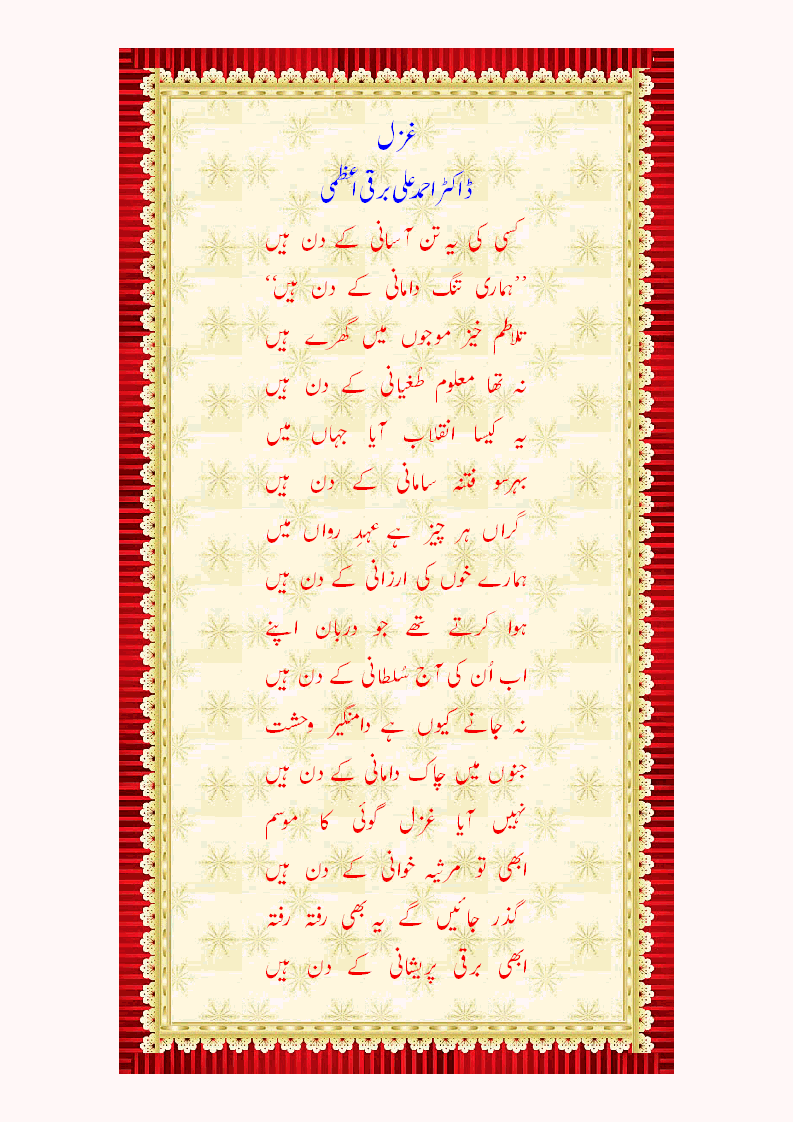 غزل
ڈاکٹر احمد علی برقی اعظمی
کسی کی یہ تن آسانی کے دن ہیں
’’ہماری تنگ دامانی کے دن ہیں‘‘
تلاطم خیز موجوں میں گھرے ہیں
نہ تھا معلوم طُغیانی کے دن ہیں
یہ کیسا انقلاب آیا جہاں میں
بہرسو فتنہ سامانی کے دن ہیں
گراں ہر چیز ہے عہدِ رواں میں
ہمارے خوں کی ارزانی کے دن ہیں
ہوا کرتے تھے جو دربان اپنے
اب اُن کی آج سُلطانی کے دن ہیں
نہ جانے کیوں ہے دامنگیر وحشت
جنوں میں چاک دامانی کے دن ہیں
نہیں آیا غزل گوئی کا موسم
ابھی تو مرثیہ خوانی کے دن ہیں
گذر جائیں گے یہ بھی رفتہ رفتہ
ابھی برقی پریشانی کے دن ہیں